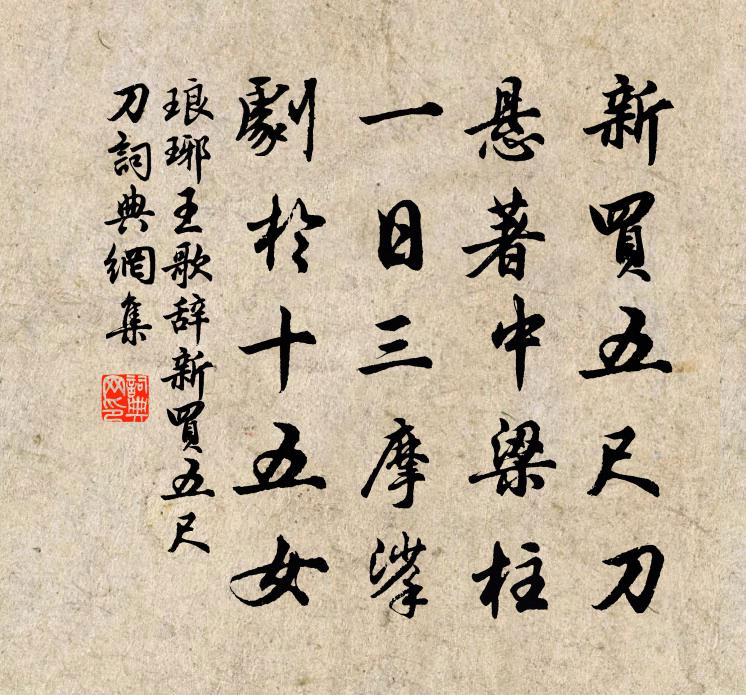 新買五尺刀
懸著中梁柱
一日三摩挲
劇於十五女
琅琊王歌辞新買五尺
刀詞典網集
詞典网印